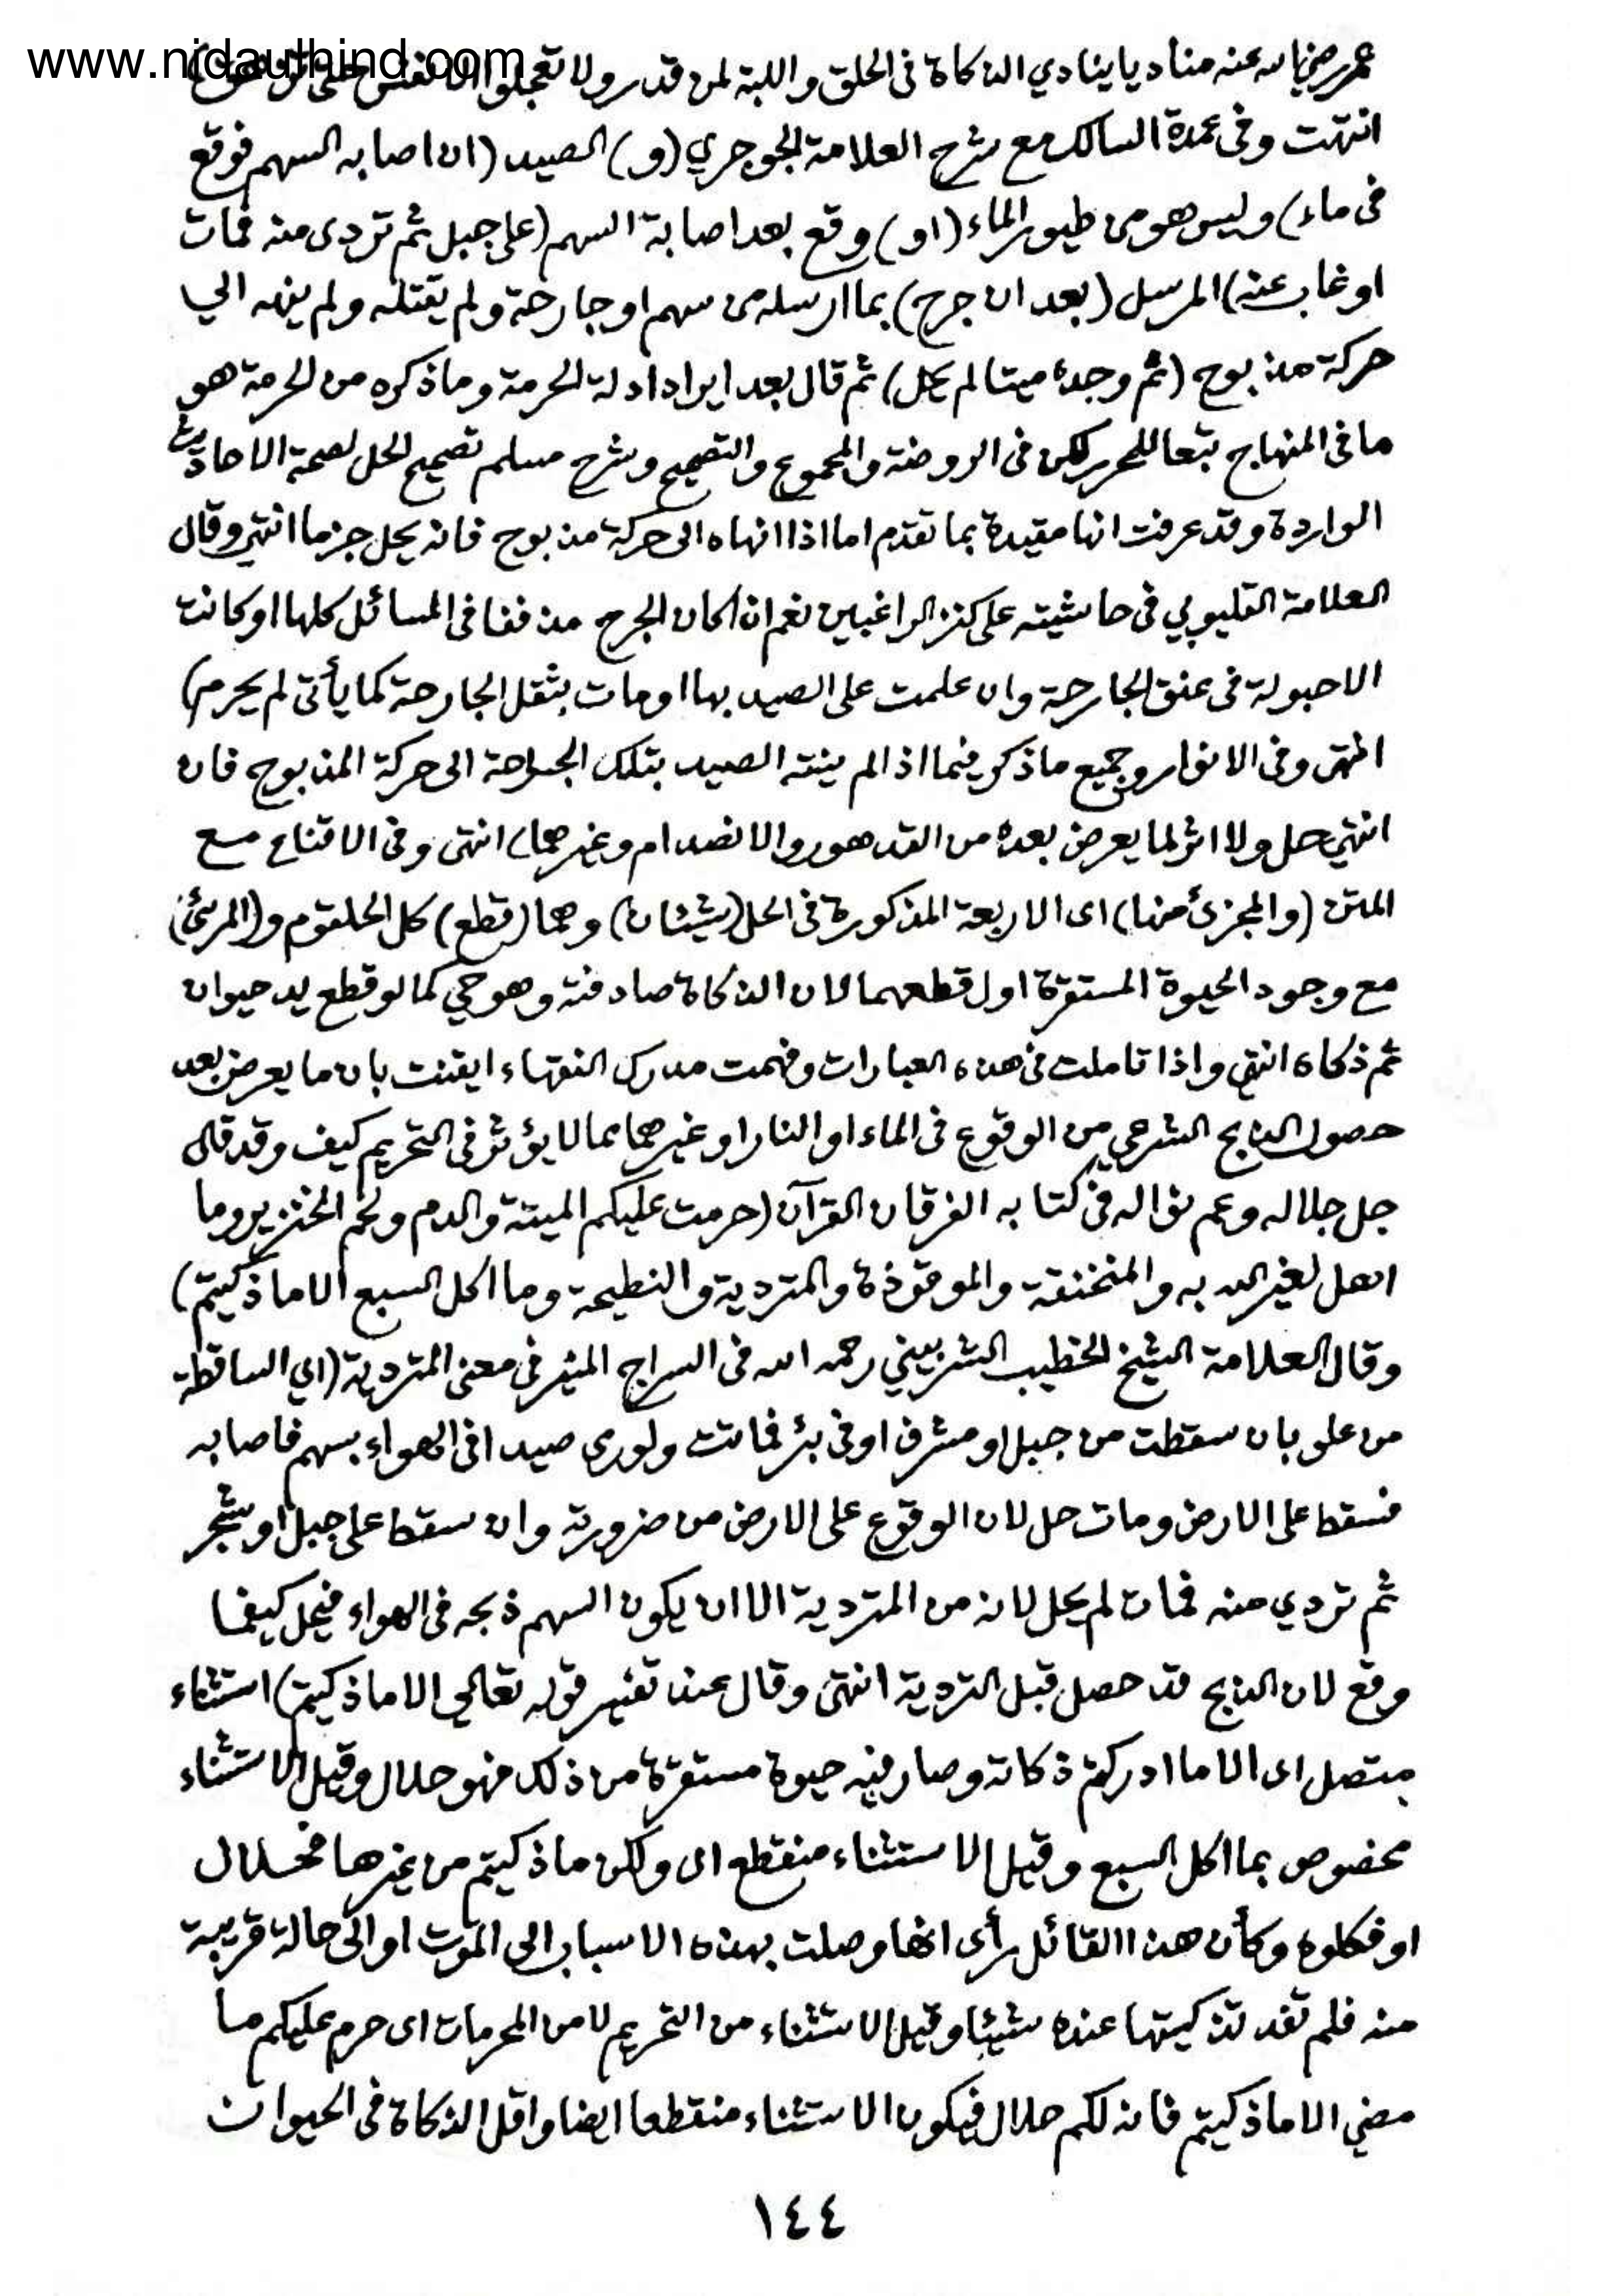 www.nidaulhind.com
عمر رضي الله عنه مناديا ينادي الذكاة في الحلق واللبة لمن قدر ولا تعجلوا الانفس حتى تزهق)
انتهت وفى عمدة السالك مع شرح العلامة الجوجري (و) الصيد (ان اصابه السهم فوقع
فى ماء) وليس هو من طيور الماء (او) وقع بعد اصابة السهم (على جبل ثم تردى منه فمات
او غاب عنه) المرسل (بعد ان جرح) بما ارسله من سهم او جارحة ولم يقتله ولم ينهه الي
حركة مذبوح (ثم وجده ميتا لم يحل) ثم قال بعد ايراد ادلة الحرمة وما ذكره من الحرمة هو
ما في المنهاج تبعا للمحرر لكن فى الروضة والمجموع والتصحيح وشرح مسلم تصحيح الحل لصحة الاحاديث
الواردة وقد عرفت انها مقيدة بما تقدم اما اذا انهاه الى حركة مذبوح فانه يحل جزما انتهى وقال
العلامة القليوبي في حاشيته على كنز الراغبين نعم ان كان الجرح مذففا فى المسائل كلها او كانت
الاحبولة فى عنق الجارحة وان علمت على الصيد بها او مات بثقل الجارحة كما يأتى لم يحرم)
انتهى وفى الانوار وجميع ما ذكر فيما اذا لم ينته الصيد بتلك الجراحة الى حركة المذبوح فان
انتهي حل ولا اثر لما يعرض بعده من التدهور والانصدام وغيرهما) انتهى وفى الاقناع مع
المتن (والمجزئ منها) اى الاربعة المذكورة فى الحل (شيئان) وهما (قطع) كل الحلقوم و(المرئ)
مع وجود الحيوة المستقرة اول قطعهما لان الذكاة صادفته وهو حي كما لو قطع يد حيوان
ثم ذكاه انتهى واذا تاملت في هذه العبارات وفهمت مدرك الفقهاء ايقنت بان ما يعرض بعد
حصول الذبح الشرعي من الوقوع فى الماء او النار او غيرهما مما لا يؤثر فى التحريم كيف وقد قال
جل جلاله وعم نواله فى كتابه الفرقان القرآن (حرمت عليكم الميتة والدم ولحم الخنزير وما
اهل لغير الله به والمنخنقة والموقوذة والمتردية والنطيحة وما اكل السبع الا ما ذكيتم)
وقال العلامة الشيخ الخطيب الشربيني رحمه الله فى السراج المنير في معنى المتردية (اي الساقطة
من علو بان سقطت من جبل او مشرف او فى بئر فماتت ولو رمى صيدا فى الهواء بسهم فاصابه
فسقط على الارض ومات حل لان الوقوع على الارض من ضرورته وان سقط على جبل او شجر
ثم تردي منه فمات لم يحل لانه من المتردية الا ان يكون السهم ذبحه فى الهواء فيحل كيفما
وقع لان الذبح قد حصل قبل التردية انتهى وقال عند تفسير قوله تعالى الا ما ذكيتم) استثناء
متصل اى الا ما ادركتم ذكاته وصار فيه حيوة مستقرة من ذلك فهو حلال وقيل الاستثناء
مخصوص بما اكل السبع وقيل الاستثناء منقطع اى ولكن ما ذكيتم من غيرها فحلال
او فكلوه وكأن هذا القائل رأى انها وصلت بهذه الاسباب الى الموت او الى حالة قريبة
منه فلم تفد تذكيتها عنده شيئا وقيل الاستثناء من التحريم لا من المحرمات اى حرم عليكم ما
مضي الا ما ذكيتم فانه لكم حلال فيكون الاستثناء منقطعا ايضا واقل الذكاة فى الحيوان
١٤٤